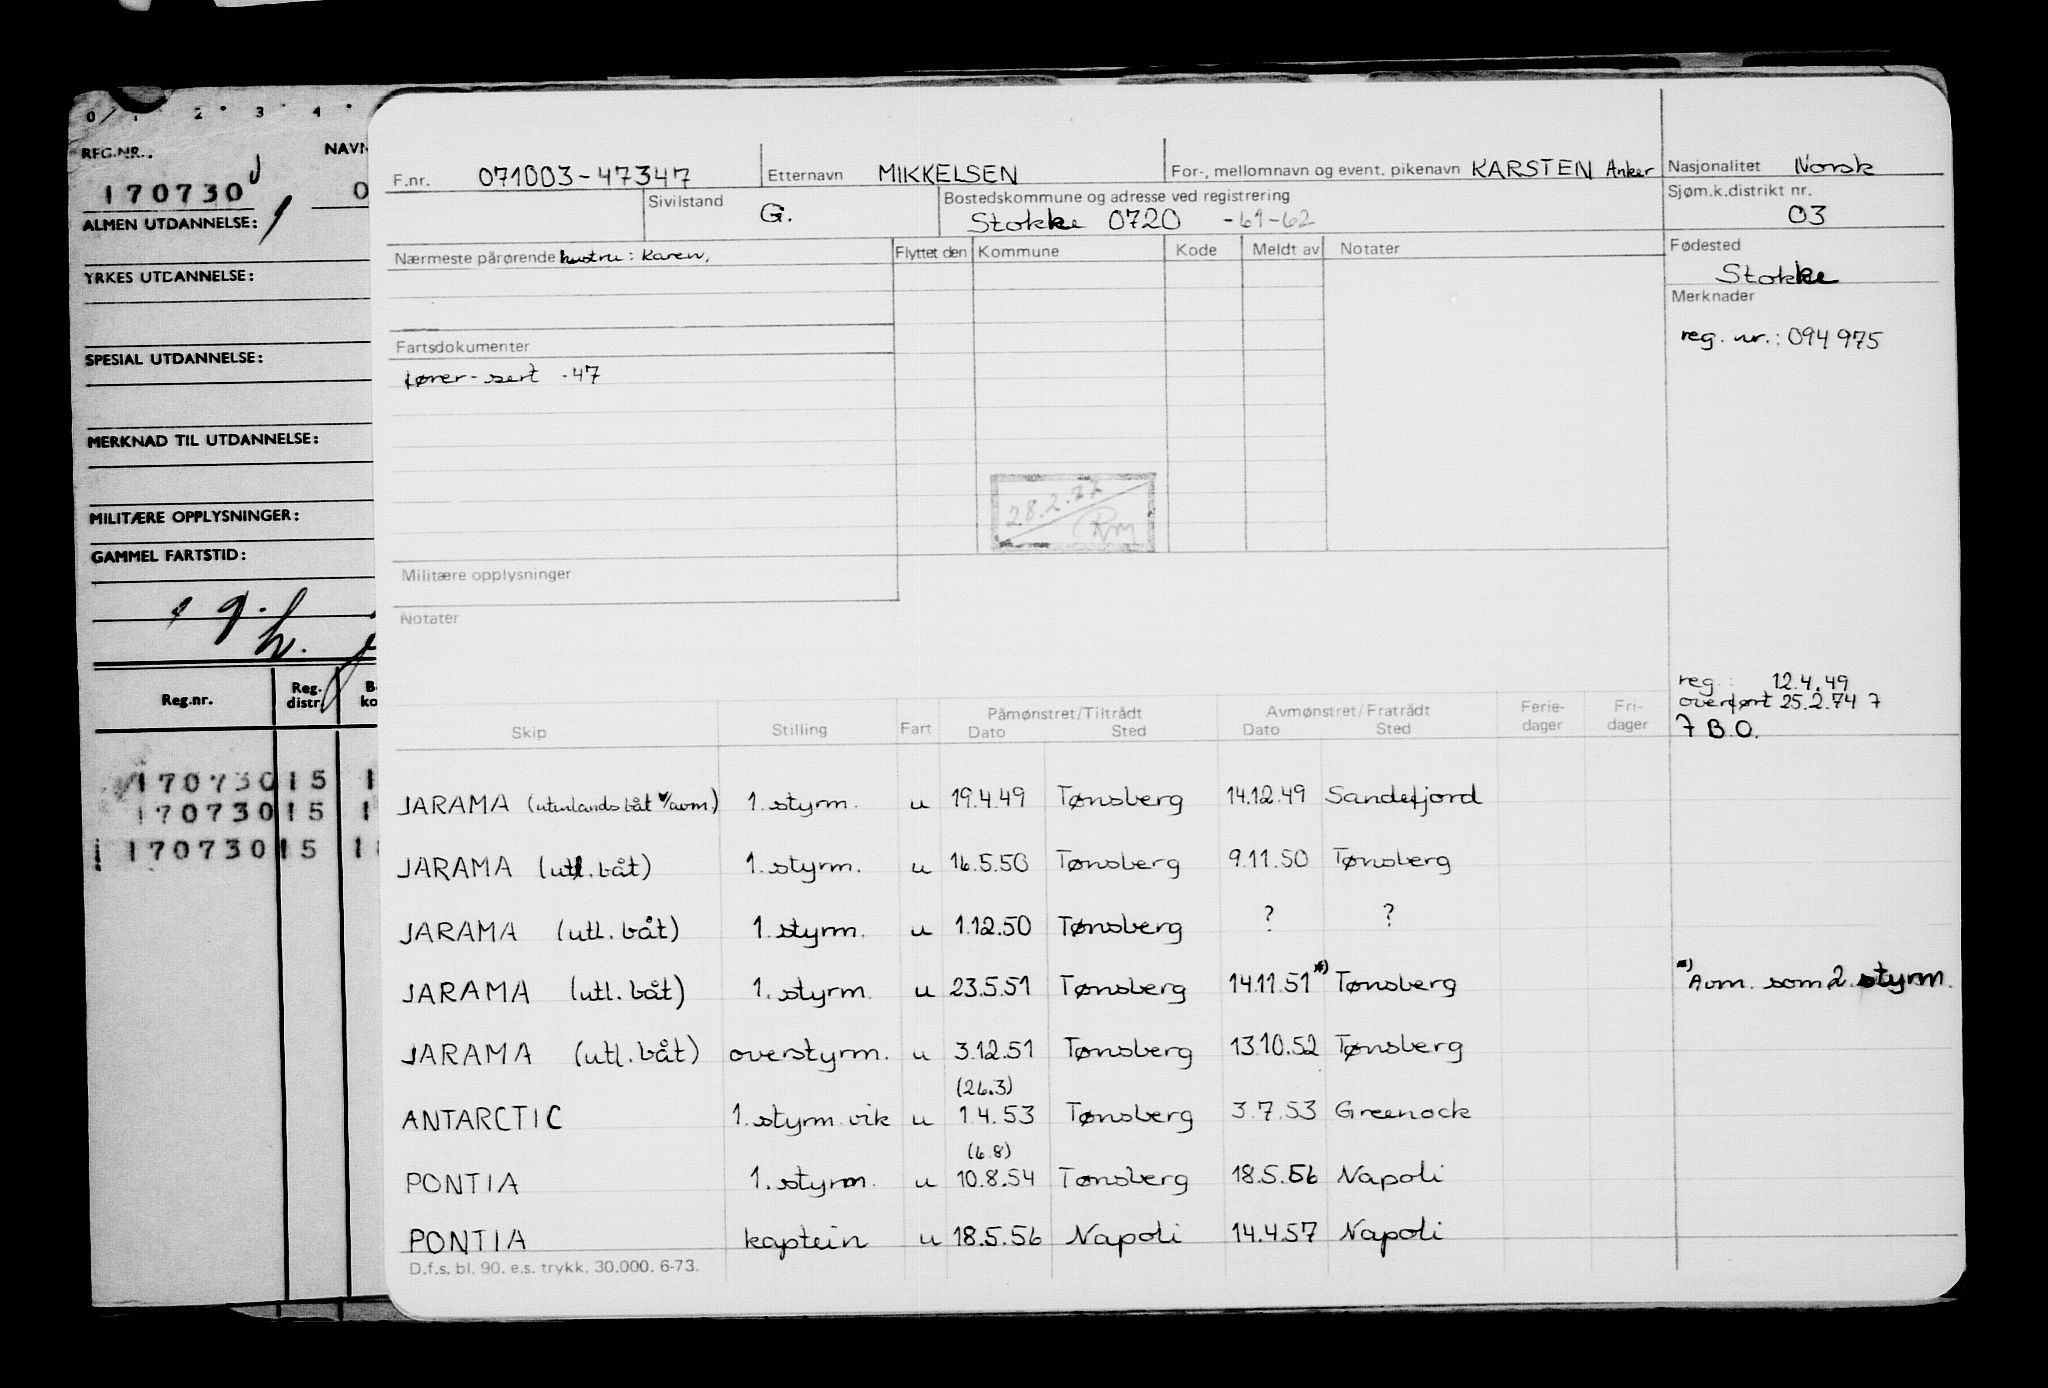 0 1 2 3 4
REG.NR.: NAVN
170730 0
ALMEN UTDANNELSE:
YRKES UTDANNELSE:
SPESIAL UTDANNELSE:
MERKNAD TIL UTDANNELSE:
MILITÆRE OPPLYSNINGER:
GAMMEL FARTSTID:
Reg.nr. Reg. distr.
170730 15 1
170730 15 1
170730 15 1
F.nr. 071003-47347 Etternavn MIKKELSEN For-, mellomnavn og event. pikenavn KARSTEN Anker Nasjonalitet Norsk
Sivilstand G. Bostedskommune og adresse ved registrering Sjøm.k.distrikt nr.
Stokke 0720 -61-62 03
Nærmeste pårørende hustru: Karen, Flyttet den Kommune Kode Meldt av Notater Fødested
Stokke
Merknader
reg. nr.: 094975
Fartsdokumenter
fører-sert -47
28.2.77
Rm
Militære opplysninger
Notater
reg.: 12.4.49
overført 25.2.74 7
7 B.O.
Skip Stilling Fart Påmønstret/Tiltrådt Dato Sted Avmønstret/Fratrådt Dato Sted Ferie-dager Fri-dager
JARAMA (utenlands båt v/avm) 1. styrm. u 19.4.49 Tønsberg 14.12.49 Sandefjord
JARAMA (utl. båt) 1. styrm. u 16.5.50 Tønsberg 9.11.50 Tønsberg
JARAMA (utl. båt) 1. styrm. u 1.12.50 Tønsberg ? ?
JARAMA (utl. båt) 1. styrm. u 23.5.51 Tønsberg 14.11.51 *) Tønsberg *) Avm. som 2. styrm.
JARAMA (utl. båt) overstyrm. u 3.12.51 Tønsberg 13.10.52 Tønsberg
(26.3)
ANTARCTIC 1. styrm. vik u 1.4.53 Tønsberg 3.7.53 Greenock
(6.8)
PONTIA 1. styrm. u 10.8.54 Tønsberg 18.5.56 Napoli
PONTIA kaptein u 18.5.56 Napoli 14.4.57 Napoli
D.f.s. bl. 90. e.s. trykk. 30.000. 6-73.